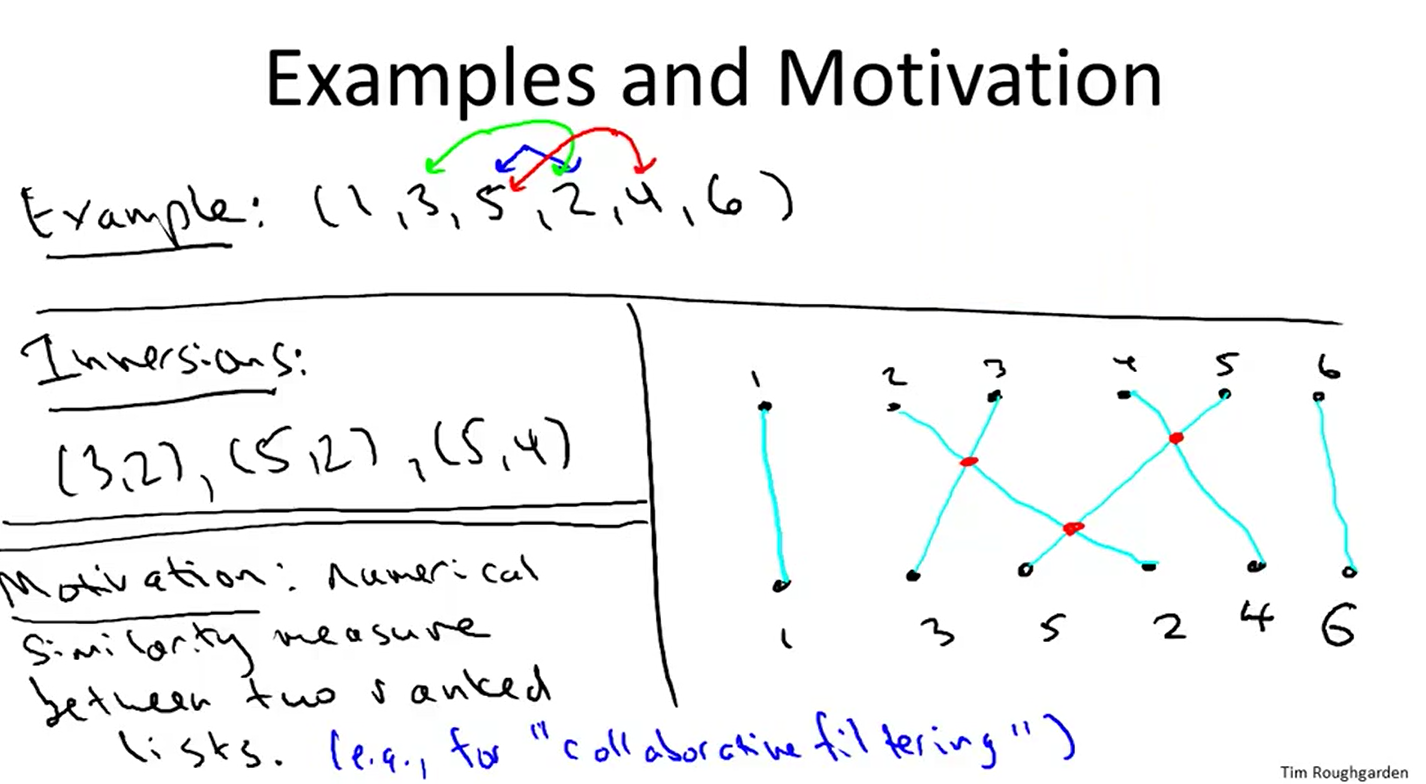 Examples and Motivation
Example: (1, 3, 5, 2, 4, 6)
Inversions:
(3,2), (5,2), (5,4)
Motivation: numerical
similarity measure
between two ranked
lists. (e.g., for "collaborative filtering")
1 2 3 4 5 6
1 3 5 2 4 6
Tim Roughgarden